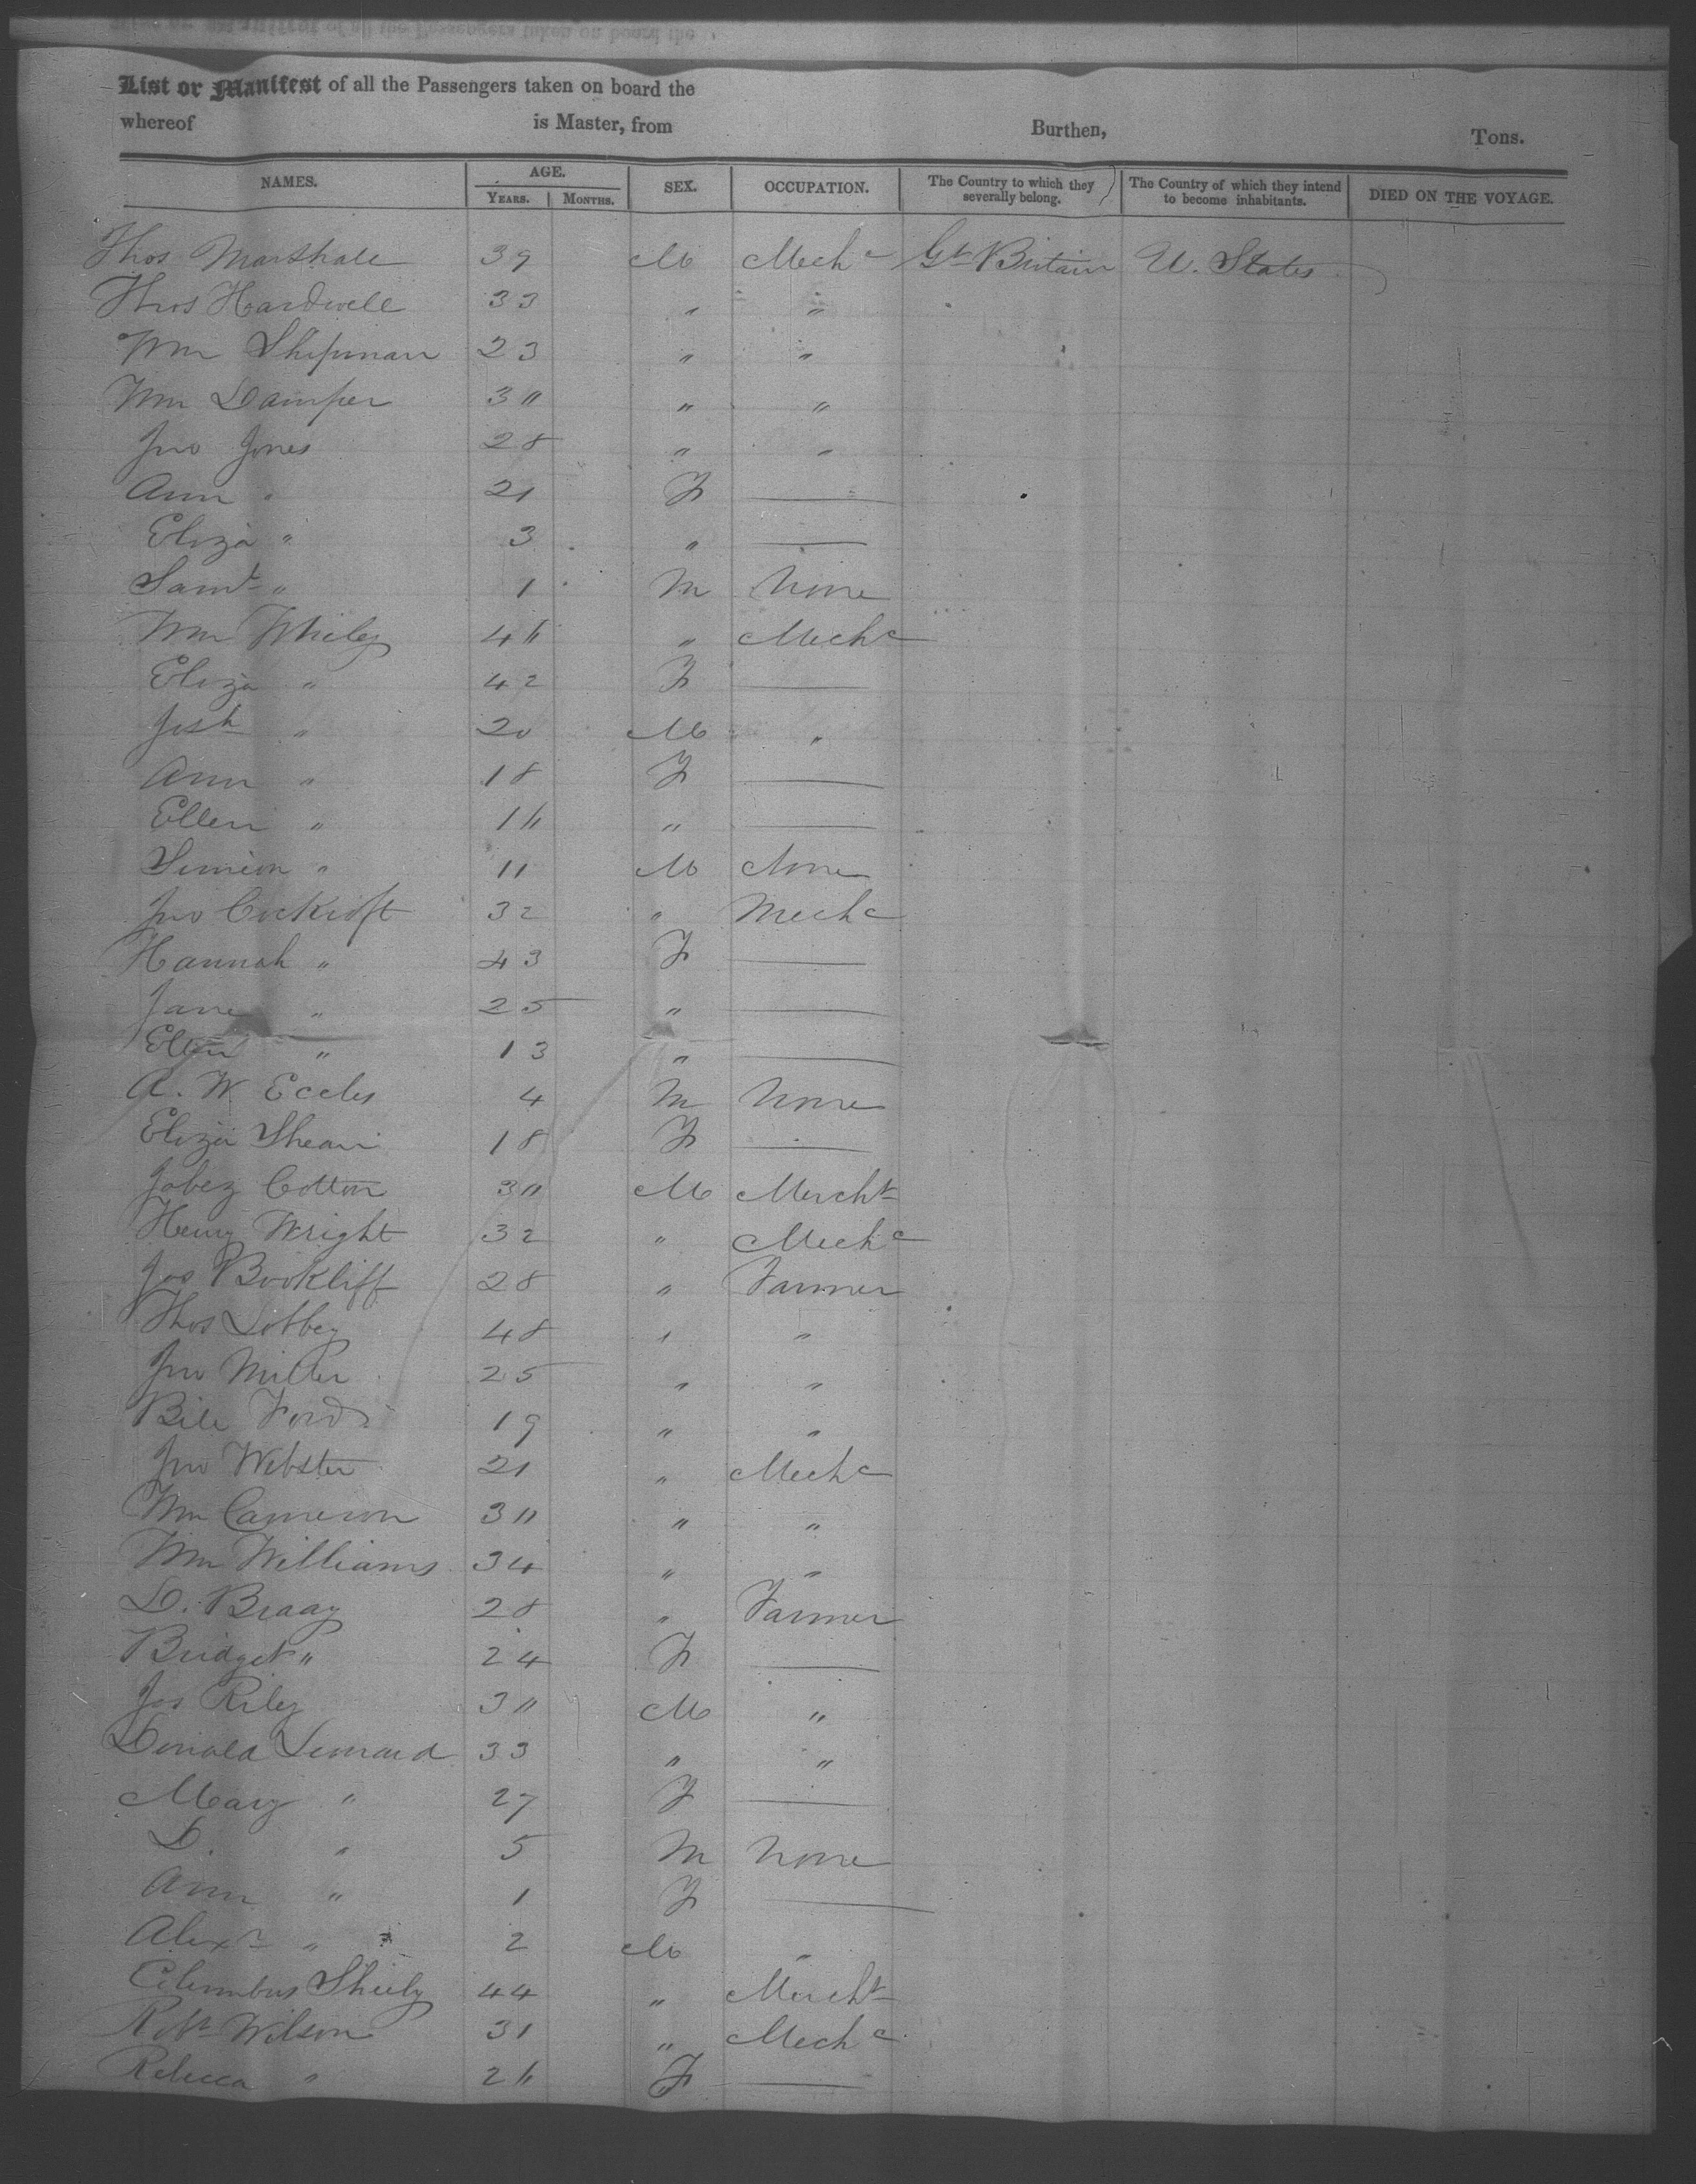 List or Manifest of all the Passengers taken on board the
whereof is Master, from Burthen, Tons.
NAMES. AGE. YEARS. MONTHS. SEX. OCCUPATION. The Country to which they severally belong. The Country of which they intend to become inhabitants. DIED ON THE VOYAGE.
Thos Marshall 39 M Mechc Gt Britain U. States
Thos Hardwell 33 " "
Wm Shipman 23 " "
Wm Damper 30 " "
Jno Jones 28 " "
Ann " 21 F —
Eliza " 3 " —
Saml " 1 M None
Wm Whiley 46 " Mechc
Eliza " 42 F —
Josh " 20 M "
Ann " 18 F —
Ellen " 16 " —
Simeon " 11 M None
Jno Cockroft 32 " Mechc
Hannah " 43 F —
Jane " 25 " —
Ellen " 13 " —
A. W Eccles 4 M None
Eliza 18 F —
Jabez Cotton 30 M Mercht
Henry Wright 32 " Mechc
Jas 28 " Farmer
Thos 48 " "
Jno Miller 25 " "
Bill Ford 19 " "
Jno Webster 21 " Mechc
Wm Cameron 30 " "
Wm Williams 34 " "
D. 28 " Farmer
Bridget " 24 F —
Jas Riley 30 M "
Donald Leonard 33 " "
Mary " 27 F —
D. " 5 M None
Ann " 1 F —
Alexr " 2 M "
Columbus 44 " Mercht
Robt Wilson 31 " Mechc
Rebecca " 26 F —